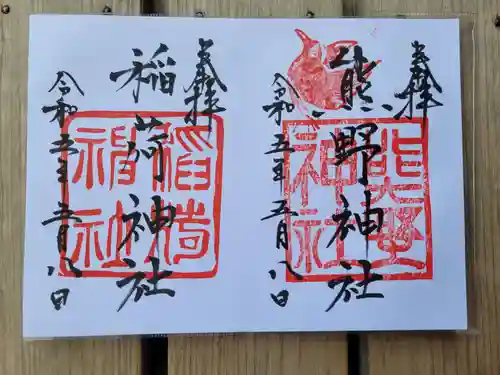 奉拝
熊野神社
令和五年五月八日
熊野神社
奉拝
稲荷神社
令和五年五月八日
稲荷神社